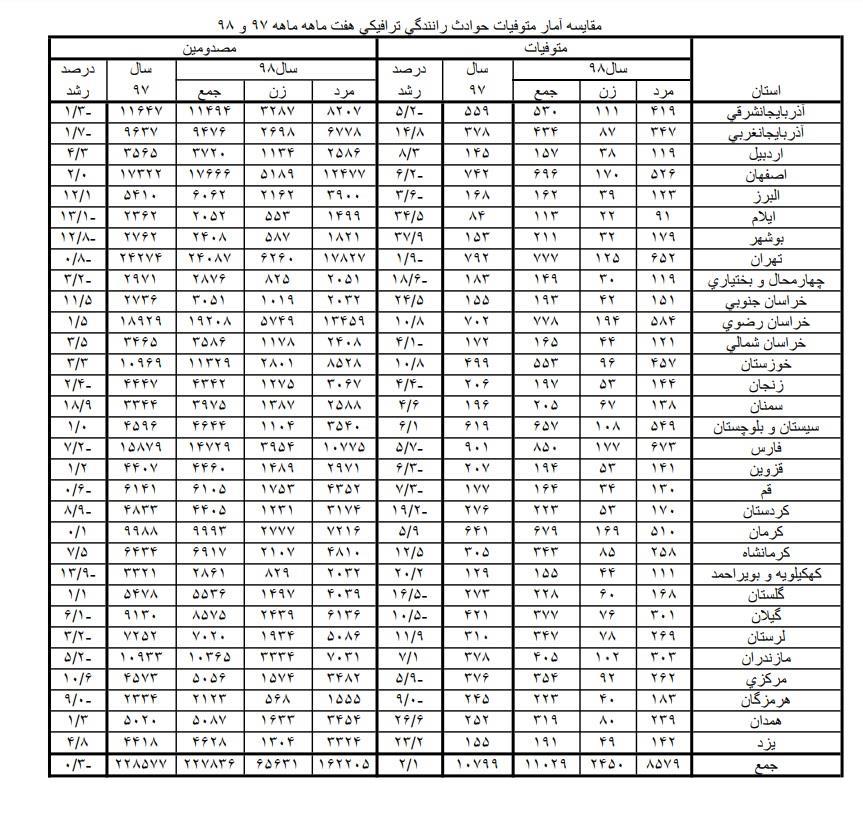 مقايسه آمار متوفيات حوادث رانندگي ترافيكي هفت ماهه ماهه ۹۷ و ۹۸
استان متوفيات مصدومين
سال۹۸ سال ۹۷ درصد رشد سال۹۸ سال ۹۷ درصد رشد
مرد زن جمع مرد زن جمع
آذربايجانشرقي ۴۱۹ ۱۱۱ ۵۳۰ ۵۵۹ -۵/۲ ۸۲۰۷ ۳۲۸۷ ۱۱۴۹۴ ۱۱۶۴۷ -۱/۳
آذربايجانغربي ۳۴۷ ۸۷ ۴۳۴ ۳۷۸ ۱۴/۸ ۶۷۷۸ ۲۶۹۸ ۹۴۷۶ ۹۶۳۷ -۱/۷
اردبيل ۱۱۹ ۳۸ ۱۵۷ ۱۴۵ ۸/۳ ۲۵۸۶ ۱۱۳۴ ۳۷۲۰ ۳۵۶۵ ۴/۳
اصفهان ۵۲۶ ۱۷۰ ۶۹۶ ۷۴۲ -۶/۲ ۱۲۴۷۷ ۵۱۸۹ ۱۷۶۶۶ ۱۷۳۲۲ ۲/۰
البرز ۱۲۳ ۳۹ ۱۶۲ ۱۶۸ -۳/۶ ۳۹۰۰ ۲۱۶۲ ۶۰۶۲ ۵۴۱۰ ۱۲/۱
ايلام ۹۱ ۲۲ ۱۱۳ ۸۴ ۳۴/۵ ۱۴۹۹ ۵۵۳ ۲۰۵۲ ۲۳۶۲ -۱۳/۱
بوشهر ۱۷۹ ۳۲ ۲۱۱ ۱۵۳ ۳۷/۹ ۱۸۲۱ ۵۸۷ ۲۴۰۸ ۲۷۶۲ -۱۲/۸
تهران ۶۵۲ ۱۲۵ ۷۷۷ ۷۹۲ -۱/۹ ۱۷۸۲۷ ۶۲۶۰ ۲۴۰۸۷ ۲۴۲۷۴ -۰/۸
چهارمحال و بختياري ۱۱۹ ۳۰ ۱۴۹ ۱۸۳ -۱۸/۶ ۲۰۵۱ ۸۲۵ ۲۸۷۶ ۲۹۷۱ -۳/۲
خراسان جنوبي ۱۵۱ ۴۲ ۱۹۳ ۱۵۵ ۲۴/۵ ۲۰۳۲ ۱۰۱۹ ۳۰۵۱ ۲۷۳۶ ۱۱/۵
خراسان رضوي ۵۸۴ ۱۹۴ ۷۷۸ ۷۰۲ ۱۰/۸ ۱۳۴۵۹ ۵۷۴۹ ۱۹۲۰۸ ۱۸۹۲۹ ۱/۵
خراسان شمالي ۱۲۱ ۴۴ ۱۶۵ ۱۷۲ -۴/۱ ۲۴۰۸ ۱۱۷۸ ۳۵۸۶ ۳۴۶۵ ۳/۵
خوزستان ۴۵۷ ۹۶ ۵۵۳ ۴۹۹ ۱۰/۸ ۸۵۲۸ ۲۸۰۱ ۱۱۳۲۹ ۱۰۹۶۹ ۳/۳
زنجان ۱۴۴ ۵۳ ۱۹۷ ۲۰۶ -۴/۴ ۳۰۶۷ ۱۲۷۵ ۴۳۴۲ ۴۴۴۷ -۲/۴
سمنان ۱۳۸ ۶۷ ۲۰۵ ۱۹۶ ۴/۶ ۲۵۸۸ ۱۳۸۷ ۳۹۷۵ ۳۳۴۴ ۱۸/۹
سيستان و بلوچستان ۵۴۹ ۱۰۸ ۶۵۷ ۶۱۹ ۶/۱ ۳۵۴۰ ۱۱۰۴ ۴۶۴۴ ۴۵۹۶ ۱/۰
فارس ۶۷۳ ۱۷۷ ۸۵۰ ۹۰۱ -۵/۷ ۱۰۷۷۵ ۳۹۵۴ ۱۴۷۲۹ ۱۵۸۷۹ -۷/۲
قزوين ۱۴۱ ۵۳ ۱۹۴ ۲۰۷ -۶/۳ ۲۹۷۱ ۱۴۸۹ ۴۴۶۰ ۴۴۰۷ ۱/۲
قم ۱۳۰ ۳۴ ۱۶۴ ۱۷۷ -۷/۳ ۴۳۵۲ ۱۷۵۳ ۶۱۰۵ ۶۱۴۱ -۰/۶
كردستان ۱۷۰ ۵۳ ۲۲۳ ۲۷۶ -۱۹/۲ ۳۱۷۴ ۱۲۳۱ ۴۴۰۵ ۴۸۳۳ -۸/۹
كرمان ۵۱۰ ۱۶۹ ۶۷۹ ۶۴۱ ۵/۹ ۷۲۱۶ ۲۷۷۷ ۹۹۹۳ ۹۹۸۸ ۰/۱
كرمانشاه ۲۵۸ ۸۵ ۳۴۳ ۳۰۵ ۱۲/۵ ۴۸۱۰ ۲۱۰۷ ۶۹۱۷ ۶۴۳۴ ۷/۵
كهكيلويه و بويراحمد ۱۱۱ ۴۴ ۱۵۵ ۱۲۹ ۲۰/۲ ۲۰۳۲ ۸۲۹ ۲۸۶۱ ۳۳۲۱ -۱۳/۹
گلستان ۱۶۸ ۶۰ ۲۲۸ ۲۷۳ -۱۶/۵ ۴۰۳۹ ۱۴۹۷ ۵۵۳۶ ۵۴۷۸ ۱/۱
گيلان ۳۰۱ ۷۶ ۳۷۷ ۴۲۱ -۱۰/۵ ۶۱۳۶ ۲۴۳۹ ۸۵۷۵ ۹۱۳۰ -۶/۱
لرستان ۲۶۹ ۷۸ ۳۴۷ ۳۱۰ ۱۱/۹ ۵۰۸۶ ۱۹۳۴ ۷۰۲۰ ۷۲۵۲ -۳/۲
مازندران ۳۰۳ ۱۰۲ ۴۰۵ ۳۷۸ ۷/۱ ۷۰۳۱ ۳۳۳۴ ۱۰۳۶۵ ۱۰۹۳۳ -۵/۲
مركزي ۲۶۲ ۹۲ ۳۵۴ ۳۷۶ -۵/۹ ۳۴۸۲ ۱۵۷۴ ۵۰۵۶ ۴۵۷۳ ۱۰/۶
هرمزگان ۱۸۳ ۴۰ ۲۲۳ ۲۴۵ -۹/۰ ۱۵۵۵ ۵۶۸ ۲۱۲۳ ۲۳۳۴ -۹/۰
همدان ۲۳۹ ۸۰ ۳۱۹ ۲۵۲ ۲۶/۶ ۳۴۵۴ ۱۶۳۳ ۵۰۸۷ ۵۰۲۰ ۱/۳
يزد ۱۴۲ ۴۹ ۱۹۱ ۱۵۵ ۲۳/۲ ۳۳۲۴ ۱۳۰۴ ۴۶۲۸ ۴۴۱۸ ۴/۸
جمع ۸۵۷۹ ۲۴۵۰ ۱۱۰۲۹ ۱۰۷۹۹ ۲/۱ ۱۶۲۲۰۵ ۶۵۶۳۱ ۲۲۷۸۳۶ ۲۲۸۵۷۷ -۰/۳